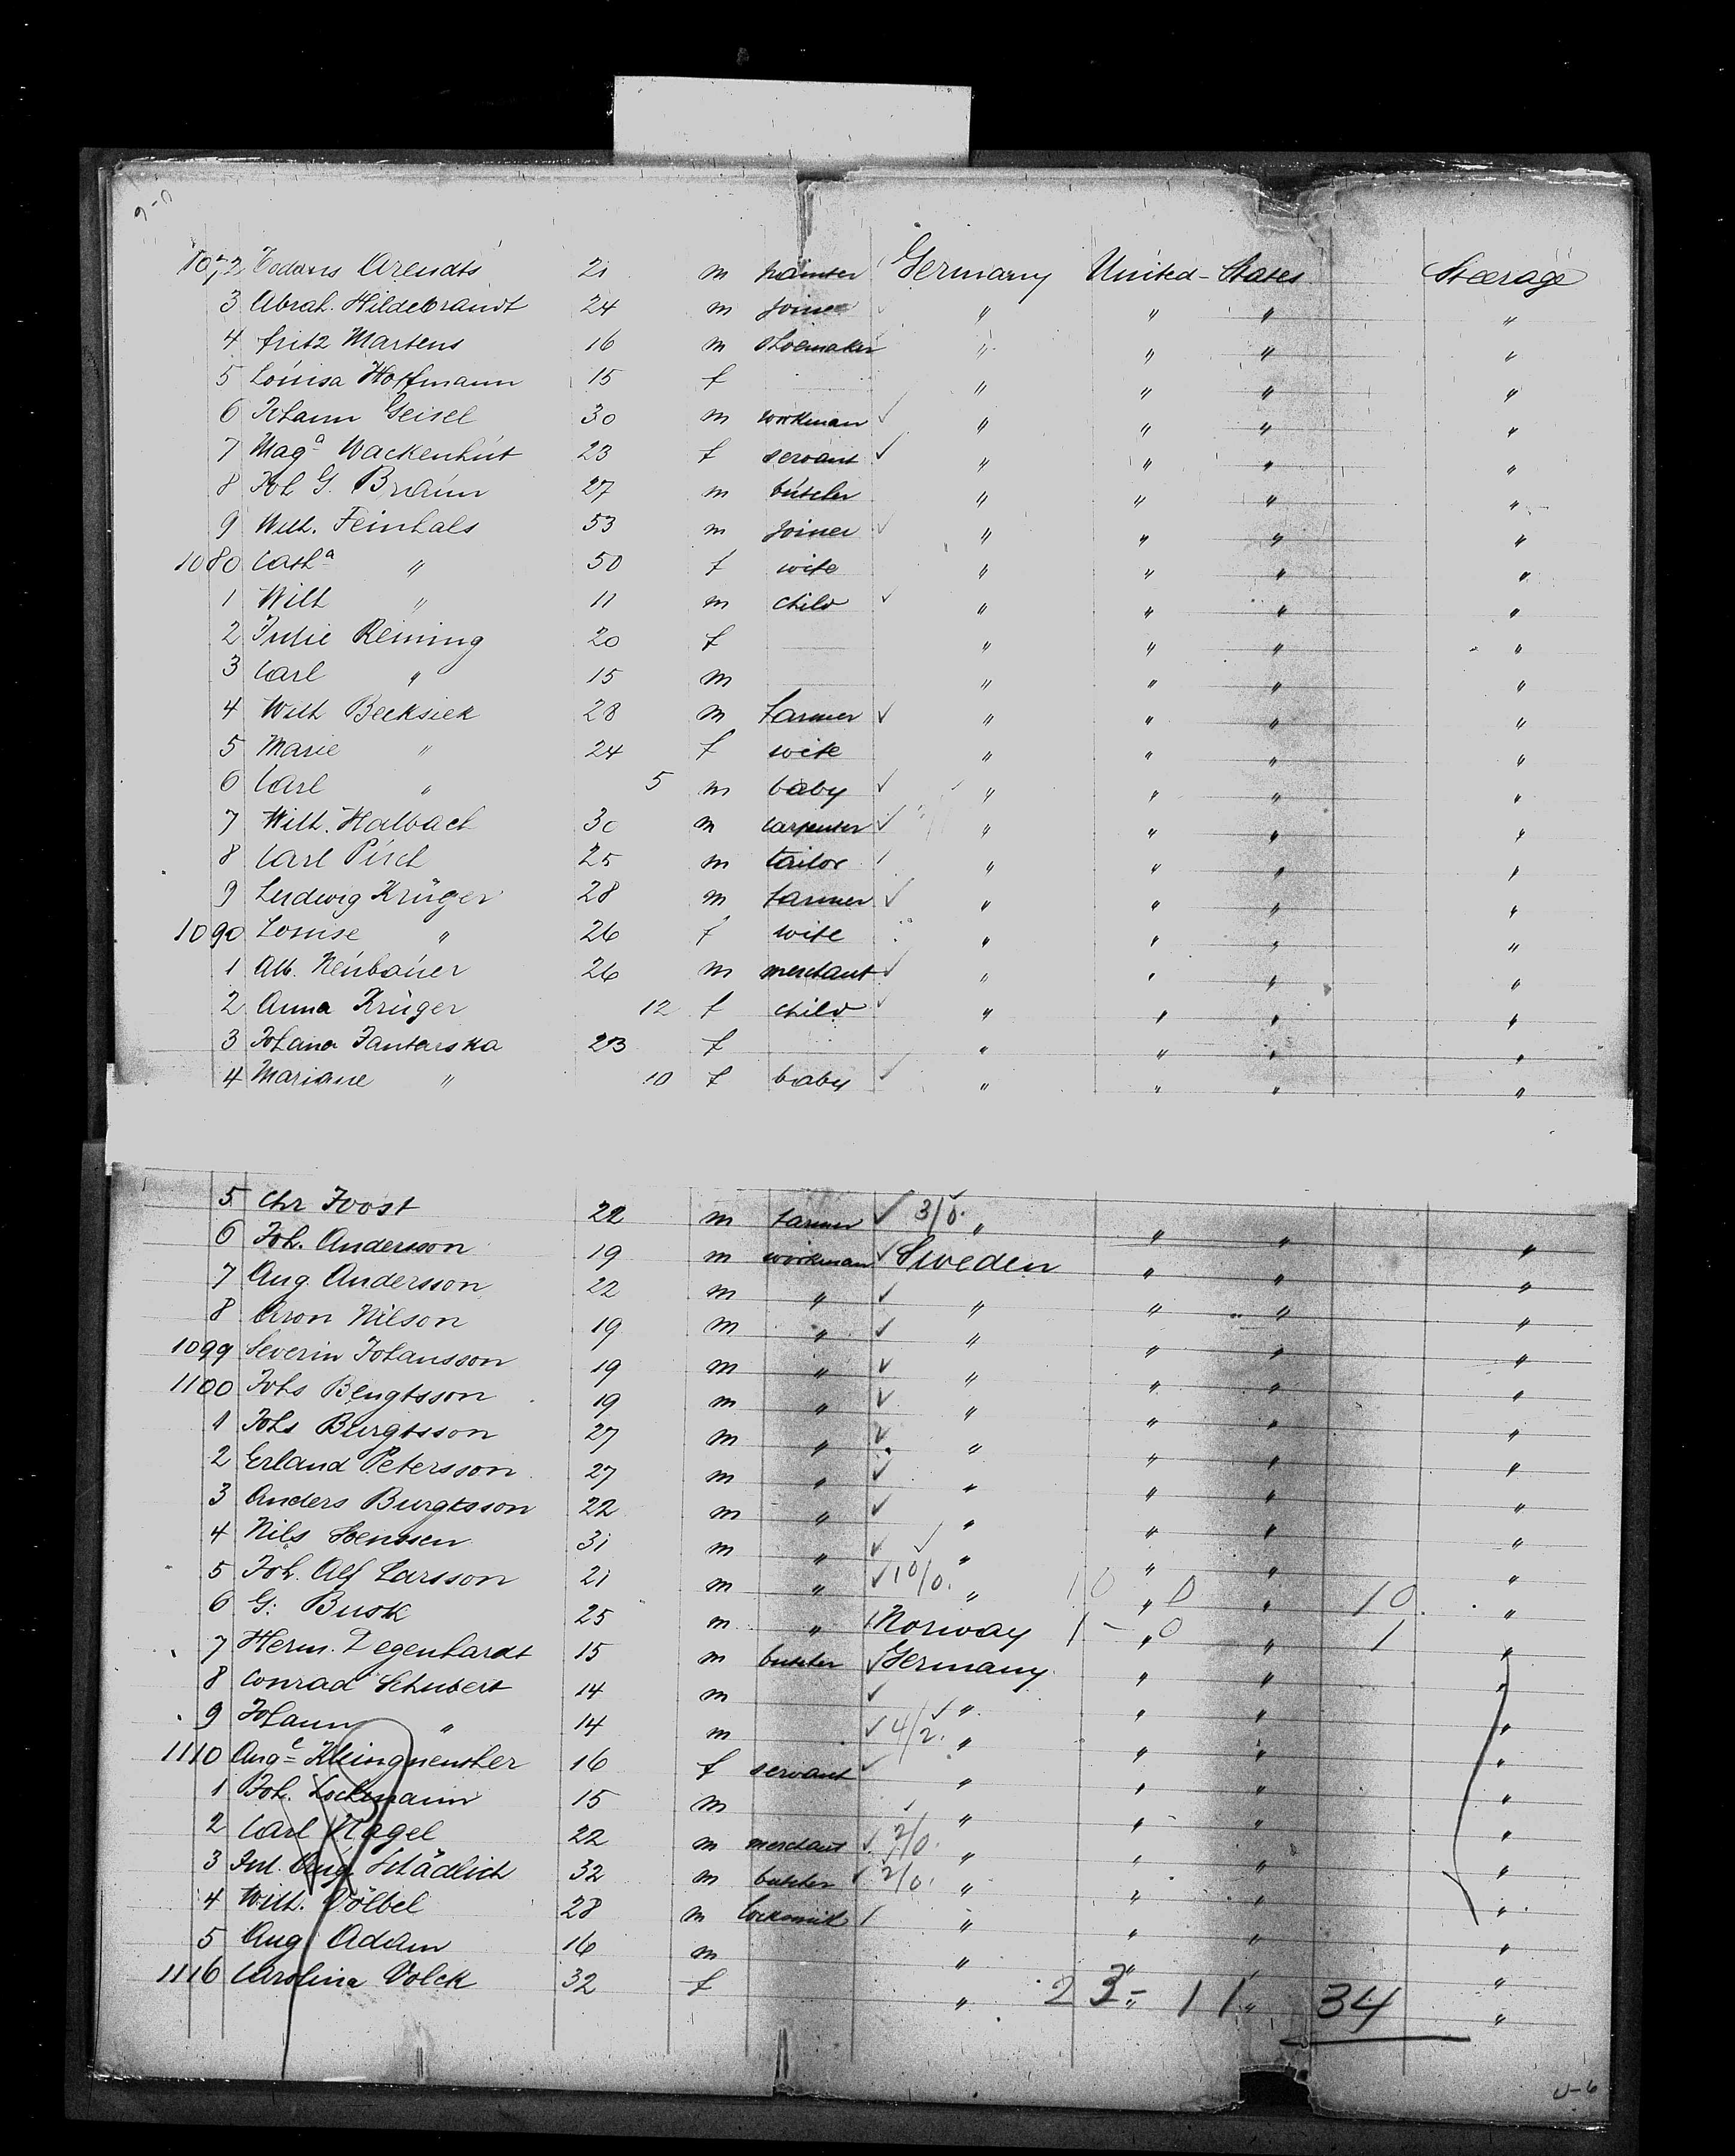 1072 Arendts 21 m painter Germany United-States Steerage
3 Abrah. Hildebrandt 24 m joiner " " " "
4 Fritz Martens 16 m shoemaker " " " "
5 Louisa Hoffmann 15 f " " " "
6 Johann Geisel 30 m workman ✓ " " " "
7 Maga Wackenhut 23 f servant ✓ " " " "
8 Joh G. Braun 27 m butcher " " " "
9 Wilh. Feinhals 53 m joiner ✓ " " " "
1080 Catha " 50 f wife " " " "
1 Wilh " 11 m child ✓ " " " "
2 Julie Reining 20 f " " " "
3 Carl " 15 m " " " "
4 Wilh Becksiek 28 m farmer ✓ " " " "
5 Marie " 24 f wife " " " "
6 Carl " 5 m baby ✓ " " " "
7 Wilh. Halbach 30 m carpenter ✓ " " " "
8 Carl Pirch 25 m tailor " " " "
9 Ludwig Krüger 28 m farmer ✓ " " " "
1090 Louise " 26 f wife " " " "
1 Alb. Neubauer 26 m merchant ✓ " " " "
2 Anna Krüger 12 f child ✓ " " " "
3 Johana Jantarska 23 f " " " "
4 Mariane " 10 f baby ✓ " " " "
5 Chr Joost 22 m farmer ✓ 3/0. " " " "
6 Joh. Andersson 19 m workman ✓ Sweden " " "
7 Aug. Andersson 22 m " ✓ " " " "
8 Aron Nilson 19 m " ✓ " " " "
1099 Severin Johansson 19 m " ✓ " " " "
1100 Johs Bengtsson 19 m " ✓ " " " "
1 Johs Burgtsson 27 m " ✓ " " " "
2 Erland Petersson 27 m " ✓ " " " "
3 Anders Burgtsson 22 m " ✓ " " " "
4 Nils 31 m " ✓ " " " "
5 Joh. Alf Larsson 21 m " ✓ 10/0. " 10 " 0 " 10 "
6 G. Busk 25 m " Norway 1 - " 0 " 1 "
7 Herm. Degenhardt 15 m butcher ✓ Germany " " "
8 Conrad Schubert 14 m ✓ " " " "
9 Johann " 14 m ✓ 4/2. " " " "
1110 Auge 16 f servant ✓ " " " "
1 Joh. Lochmann 15 m " " " "
2 Carl Nagel 22 m merchant ✓ 2/0. " " " "
3 Jul. Aug. Schädlich 32 m butcher ✓ 2/0. " " " "
4 Wilh. Völbel 28 m locksmith " " " "
5 Aug Adam 16 m " " " "
1116 Carolina Volck 32 f " 23 - " 11 " 34 "